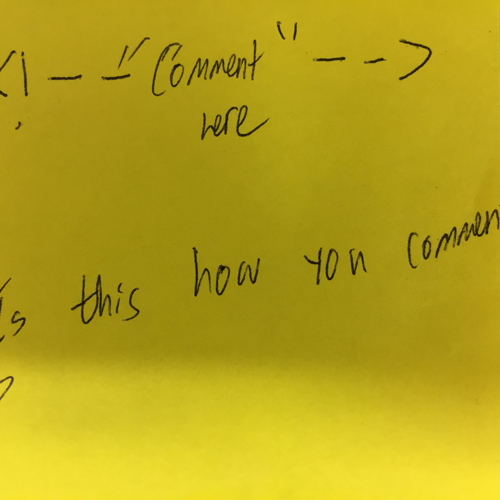 <!-- "Comment" -->
here
Is this how you commen
?